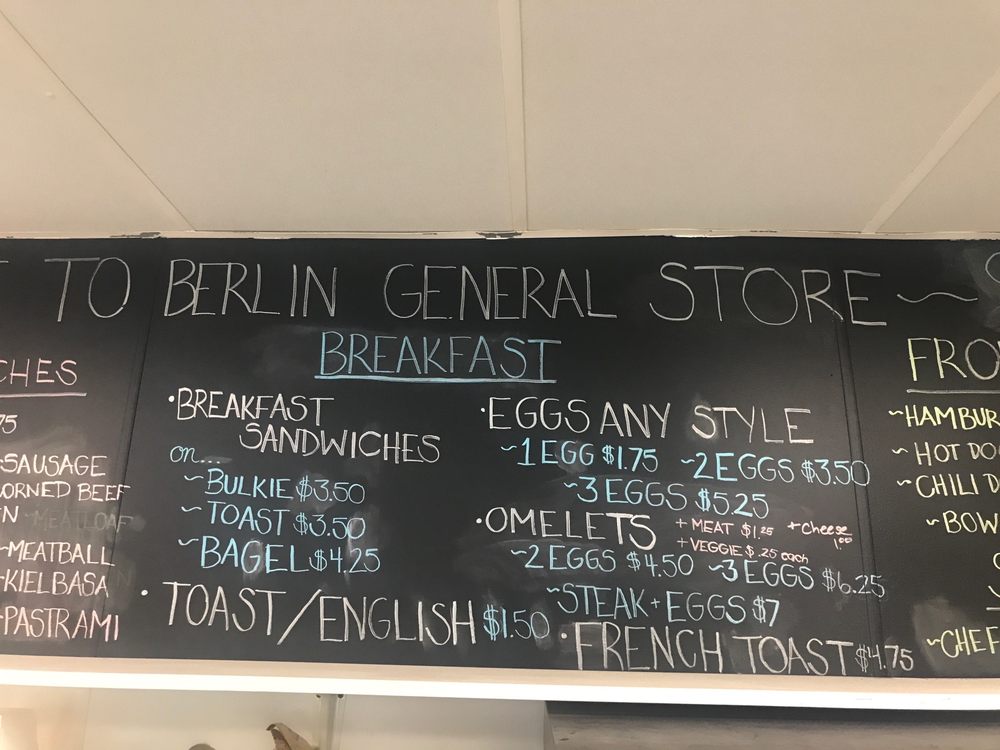 TO BERLIN GENERAL STORE ~
CHES
75
~SAUSAGE
CORNED BEEF
~MEATLOAF
~MEATBALL
~KIELBASA
~PASTRAMI
BREAKFAST
·BREAKFAST
SANDWICHES
on...
~BULKIE $3.50
~TOAST $3.50
~BAGEL $4.25
·TOAST/ENGLISH $1.50
·EGGS ANY STYLE
~1 EGG $1.75 ~2 EGGS $3.50
~3 EGGS $5.25
·OMELETS +MEAT $1.25 +Cheese 1.00
+VEGGIE $.25 each
~2 EGGS $4.50 ~3 EGGS $6.25
~STEAK + EGGS $7
·FRENCH TOAST $4.75
FRO
~HAMBUR
~HOT DO
~CHILI D
~BOW
~CHEF